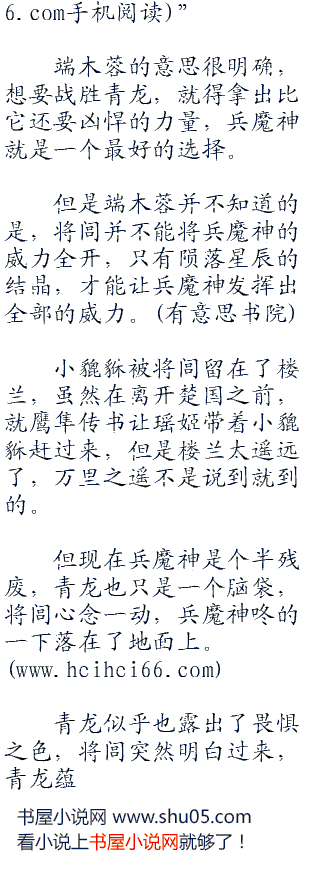 6.com手机阅读)”
端木蓉的意思很明确，
想要战胜青龙，就得拿出比
它还要凶悍的力量，兵魔神
就是一个最好的选择。
但是端木蓉并不知道的
是，将闾并不能将兵魔神的
威力全开，只有陨落星辰的
结晶，才能让兵魔神发挥出
全部的威力。(有意思书院)
小貔貅被将闾留在了楼
兰，虽然在离开楚国之前，
就鹰隼传书让瑶姬带着小貔
貅赶过来，但是楼兰太遥远
了，万里之遥不是说到就到
的。
但现在兵魔神是个半残
废，青龙也只是一个脑袋，
将闾心念一动，兵魔神咚的
一下落在了地面上。
(www.hcihci66.com)
青龙似乎也露出了畏惧
之色，将闾突然明白过来，
青龙蕴
书屋小说网 www.shu05.com
看小说上书屋小说网就够了！